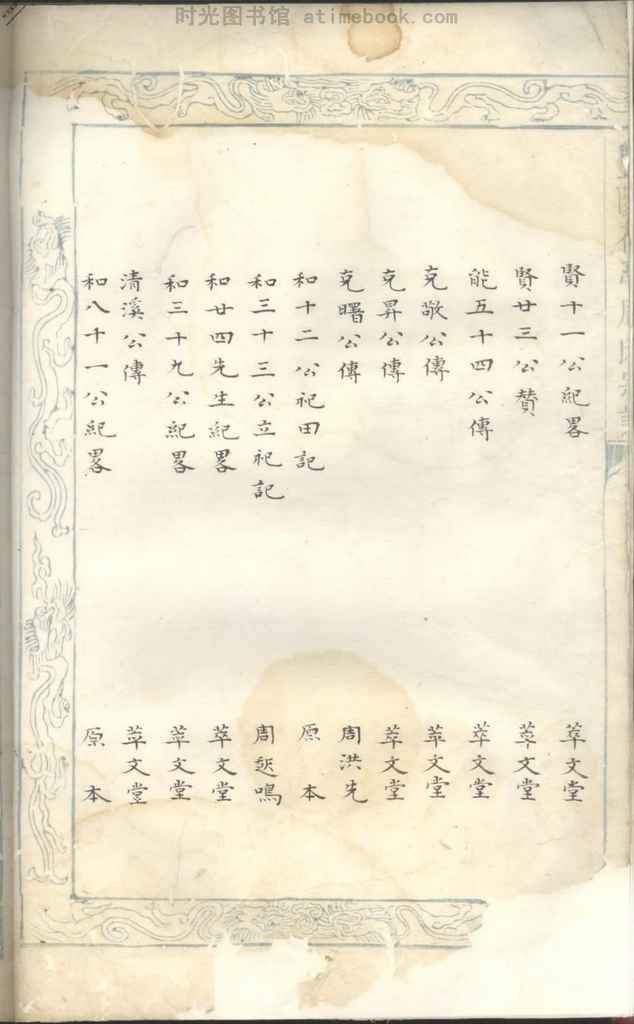 时光图书馆 atimebook.com
賢十一公紀畧 萃文堂
賢廿三公贊 萃文堂
能五十四公傳 萃文堂
克敬公傳 萃文堂
克昇公傳 萃文堂
克曙公傳 周洪先
和十二公祀田記 原本
和三十三公立祀記 周鳴
和廿四先生紀畧 萃文堂
和三十九公紀畧 萃文堂
清溪公傳 萃文堂
和八十一公紀畧 原本